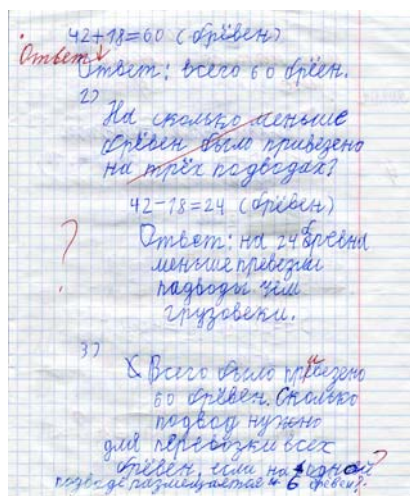 42+18=60 (брёвен)
Ответ ↓
Ответ: всего 60 брёен.
2)
На сколько меньше
брёвен было привезено
на трёх подводах?
42-18=24 (брёвен)
Ответ: на 24 бревна
?
меньше превезли
подводы чем
грузовеки.
3)
Всего было превезено
60 брёвен. Сколько
подвод нужно
для перевозки всех
брёвен, если на 1 одной ?
подводе размещается 6 брёвен?